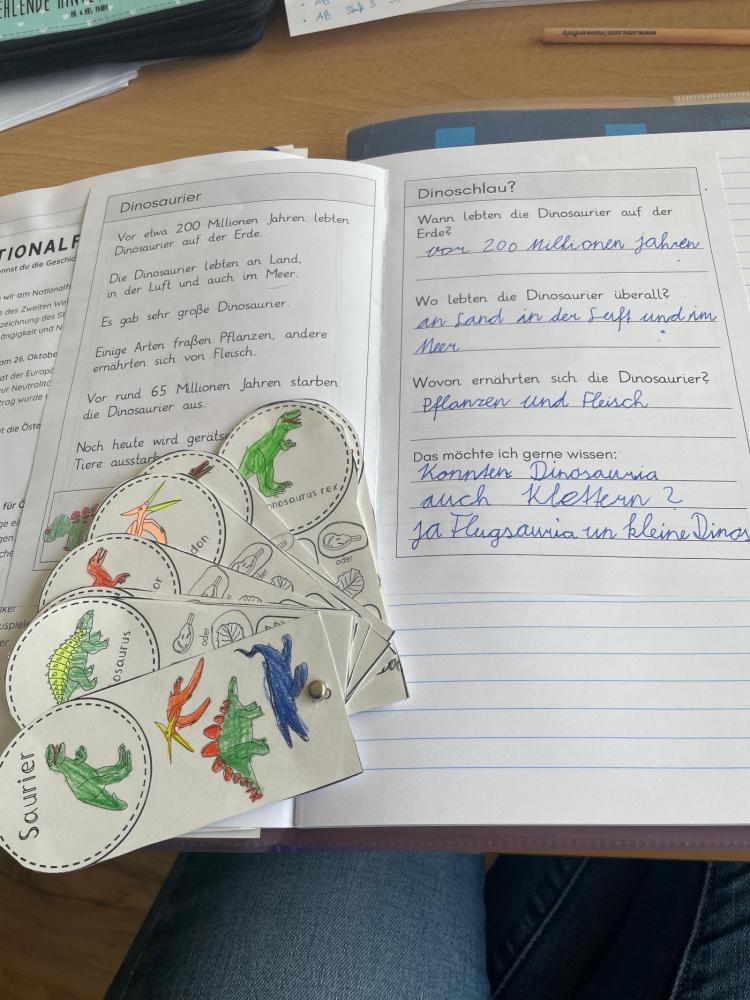 EHLENDE HINTE
MR. & MRS. PANDA
AB
AB Stufe 3
TIONALF
ennst du die Geschic
wir am Nationalf
des Zweiten We
zeichnung des St
ängigkeit und N
am 26. Oktobe
at der Europä
ur Neutralitä
trag wurde
t die Öste
für Ö
Dinosaurier
Vor etwa 200 Millionen Jahren lebten
Dinosaurier auf der Erde.
Die Dinosaurier lebten an Land,
in der Luft und auch im Meer.
Es gab sehr große Dinosaurier.
Einige Arten fraßen Pflanzen, andere
ernährten sich von Fleisch.
Vor rund 65 Millionen Jahren starben
die Dinosaurier aus.
Noch heute wird geräts
Tiere ausstarb
nnosaurus rex
oder
don
oder
or
oder
osaurus
Saurier
Dinoschlau?
Wann lebten die Dinosaurier auf der
Erde?
vor 200 Millionen Jahren
Wo lebten die Dinosaurier überall?
an Land in der Luft und im
Meer
Wovon ernährten sich die Dinosaurier?
Pflanzen und Fleisch
Das möchte ich gerne wissen:
Konnten Dinosauria
auch Klettern?
ja Flugsauria un kleine Dinos